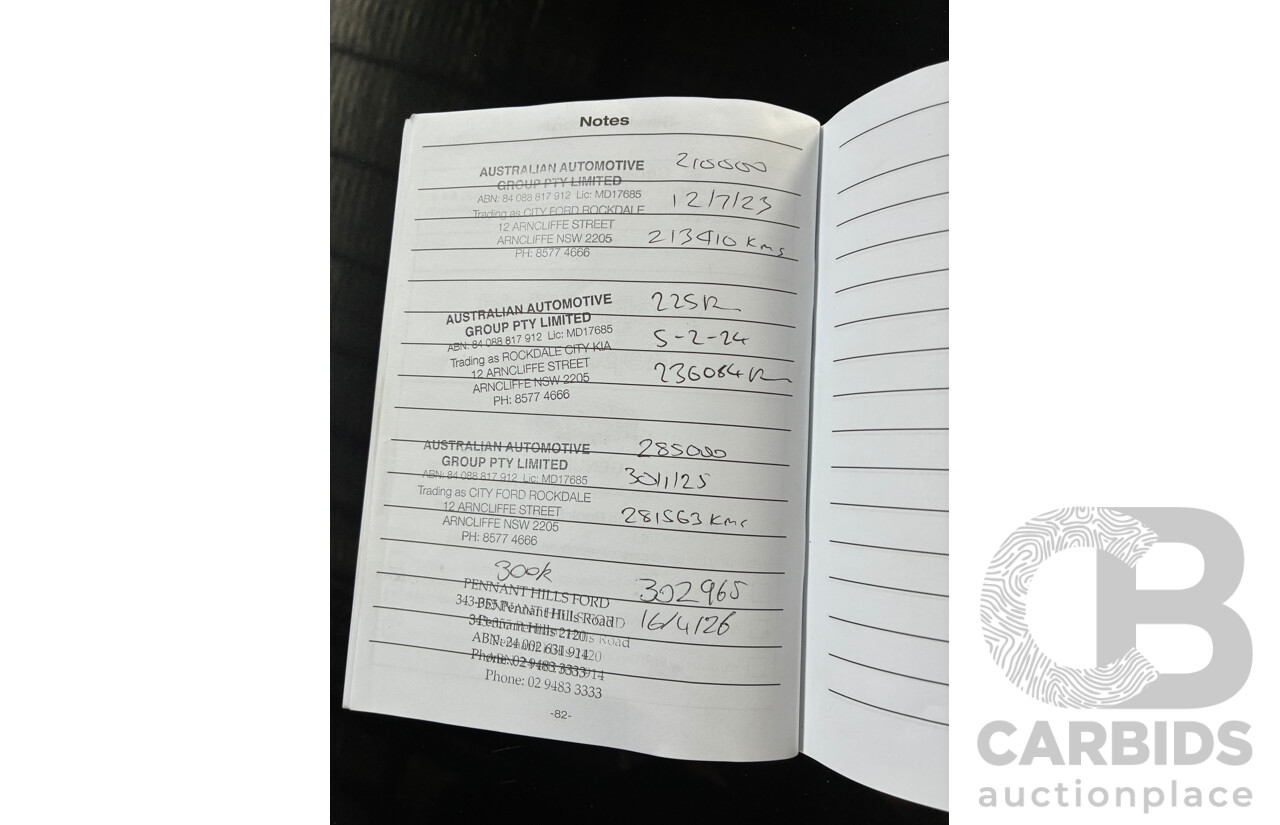 Notes
AUSTRALIAN AUTOMOTIVE
GROUP PTY LIMITED
ABN: 84 088 817 912 Lic: MD17685
Trading as CITY FORD ROCKDALE
12 ARNCLIFFE STREET
ARNCLIFFE NSW 2205
PH: 8577 4666
210000
12/7/23
213410 Kms
AUSTRALIAN AUTOMOTIVE
GROUP PTY LIMITED
ABN: 84 088 817 912 Lic: MD17685
Trading as ROCKDALE CITY KIA
12 ARNCLIFFE STREET
ARNCLIFFE NSW 2205
PH: 8577 4666
225K
5-2-24
236084K
AUSTRALIAN AUTOMOTIVE
GROUP PTY LIMITED
ABN: 84 088 817 912 Lic: MD17685
Trading as CITY FORD ROCKDALE
12 ARNCLIFFE STREET
ARNCLIFFE NSW 2205
PH: 8577 4666
285000
30/1/25
281563 Kms
300K
PENNANT HILLS FORD
343-355 Pennant Hills Road
Pennant Hills 2120
ABN: 24 002 631 914
Phone: 02 9483 3333
Phone: 02 9483 3333
302965
16/4/26
-82-
CB
CARBIDS
auctionplace